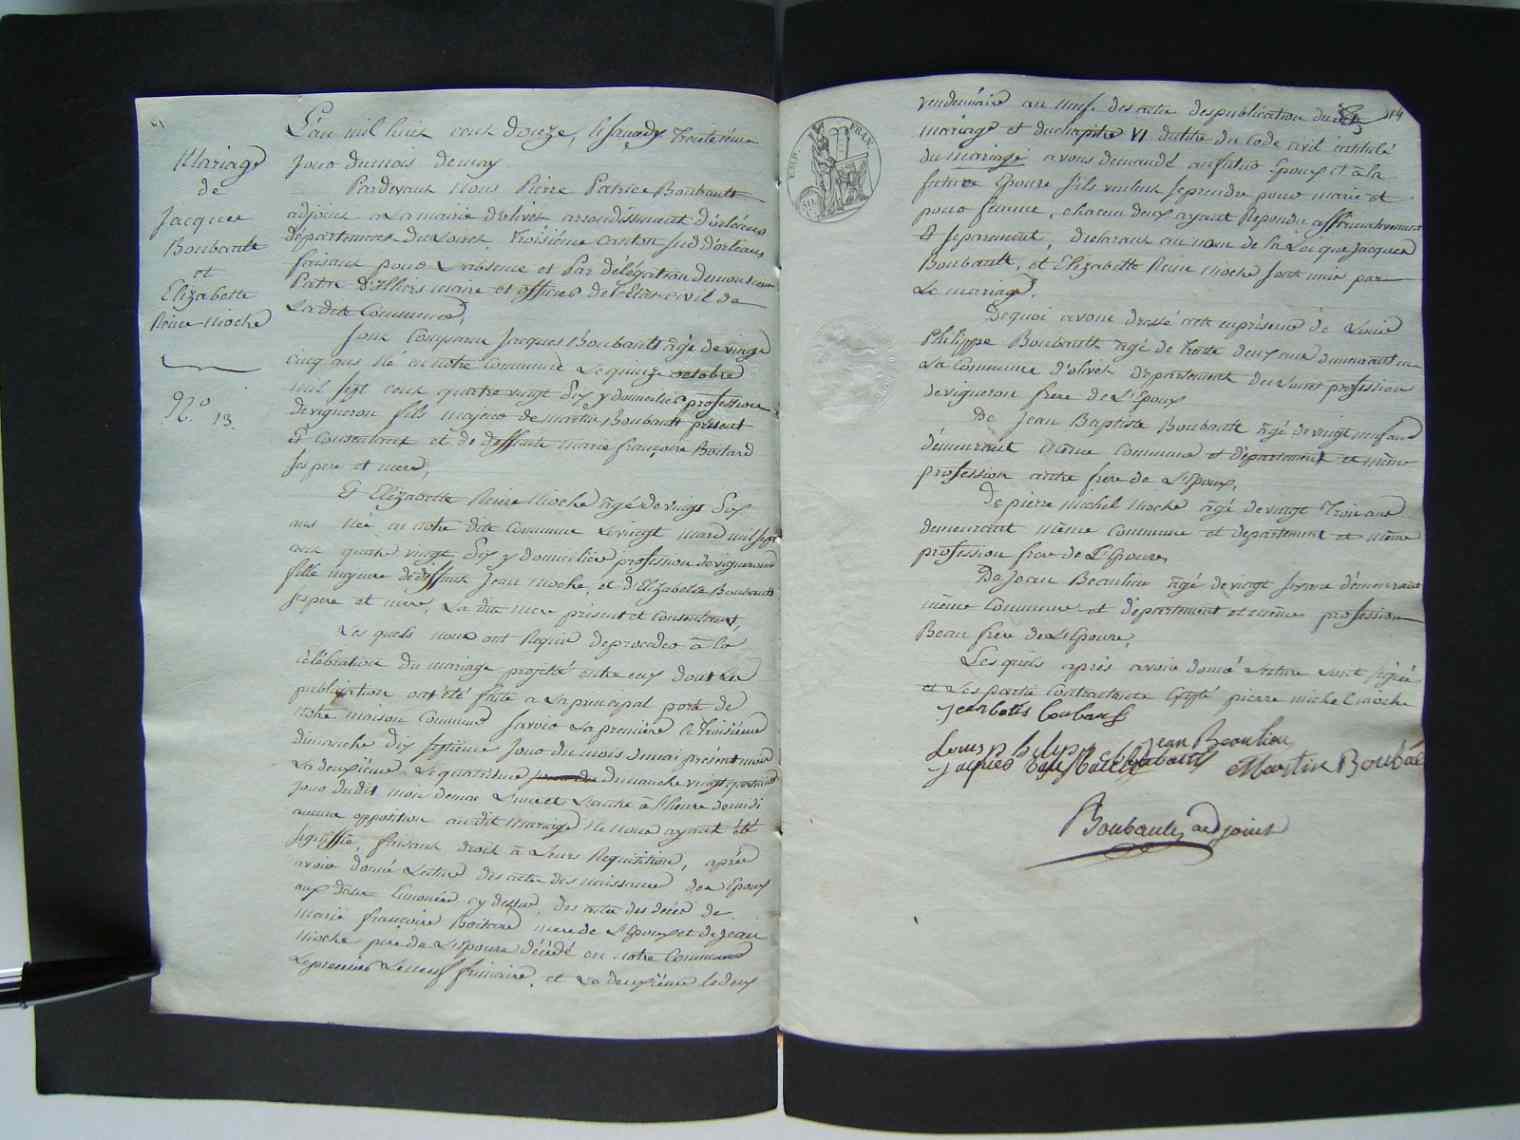 Mariage
de
Jacques
Boubault
et
Elizabette
Reine Mioche
N.º 13.
L'an mil huit cent douze, le samedy trentième
jour du mois de may
Pardevant Nous Pierre Patrice Boubault
adjoint a la mairie d'olivet arrondissement d'orléans
département du Loiret, troisième canton sud d'orleans
faisant pour l'absence et par délégation de monsieur
maire et officier de l'Etat civil de
la dite Commune,
Sont Comparu Jacques Boubault âgé de vingt
cinq ans Né en notre Commune le quinze octobre
mil sept cent quatre vingt Six y domicilié profession
de vigneron fils majeur de Martin Boubault présent
Et Consentant et de deffunte Marie françoise Boitard
ses pere et mere,
Et Elizabette Reine Mioche âgé de vingt Six
ans Née en notre dite Commune le vingt mars mil sept
cent quatre vingt Six y domiciliée profession de vigneronne
fille majeure de deffunt Jean Mioche, et d'Elizabette Boubault
ses pere et mere, La dite mere présent et Consentant,
Les quels nous ont Requis de proceder à la
célébration du mariage projetté entre eux dont les
publication ont été faite a la principal porte de
notre maison Commune savoir la première le troisième
dimanche dix septième jour du mois de mai présent mois
La deuxième le quatrième dimanche vingt quatrième
jour dudit mois de mai à l'heure de midi
aucune opposition audit mariage Ne nous ayant été
signiffié, faisant droit à leurs Requisition, après
avoir donné Lecture des actes des naissance des Epoux
aux date Enoncée cy dessus, des actes des décès de
Marie françoise Boitard mere de l'Epoux et de Jean
Mioche pere de l'Epouse décédé en notre Commune
le premier frimaire, et le deuxième le deux
EMP. FRAN.
114
vendemiaire an neuf. des actes des publication du
mariage et du chapitre VI du titre du Code civil intitulé
du Mariage avons demandé au futur Epoux et à la
future Epouse s'ils veulent se prendre pour mari et
pour femme, chacun deux ayant Repondu affirmativement
Et separement, declarons au nom de la Loi que Jacques
Boubault, et Elizabette Reine Mioche sont unis par
Le mariage.
De quoi avons dressé acte en présence de Louis
Philippe Boubault âgé de trente deux ans demeurant en
la Commune d'olivet département du Loiret profession
de vigneron frere de l'Epoux
De Jean Baptiste Boubault âgé de vingt neuf ans
démeurant même Commune et département et même
profession autre frere de l'Epoux,
De pierre Michel Mioche âgé de vingt trois ans
demeurant même Commune et département et même
profession frere de l'Epouse,
De Jean Beaulieu âgé de vingt démeurant
même Commune et département et même profession
Beau frere de l'Epouse,
Les quels après avoir donné lecture sont signé
et les partie Contractante Excepté pierre michel mioche
jean batis boubault
Louis philipe boubault jean Beaulieu
jacques boubault Martin Boubau
Boubault, adjoint